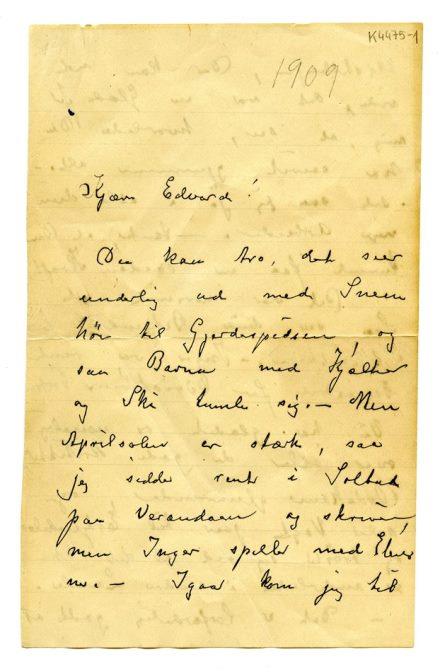 K4475-1
1909
Kjære Edvard!
Du kan tro, det seer
underlig ud med Sneen
hör til Gjerdespidsen, og
saa Barna med Kjælker
og Ski tumle sig. – Men
Aprilsolen er stærk, saa
jeg sidder rent i Soltelt
paa Verandaen og skriver,
men Inger spiller med Elever
ne. – Igaar kom jeg til